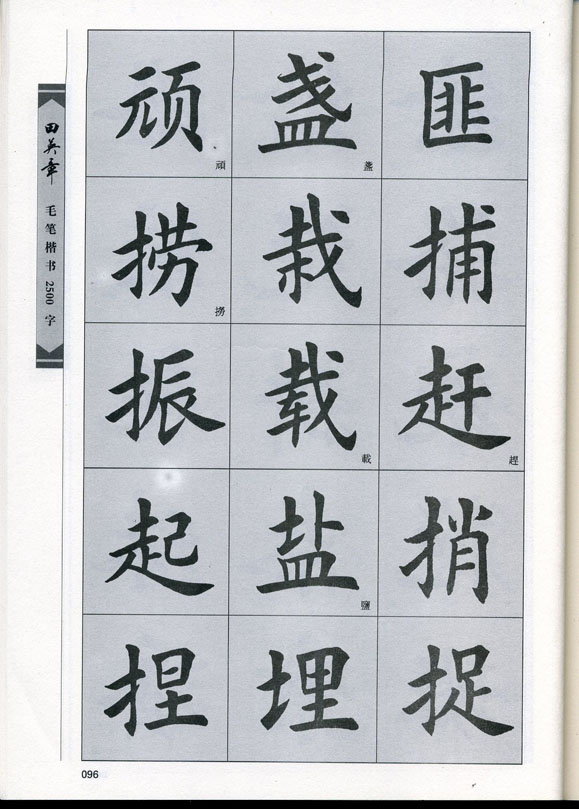 顽 盏 匪
頑 盞
捞 栽 捕
撈
振 载 赶
載 趕
起 盐 捎
鹽
捏 埋 捉
田英章
毛笔楷书2500字
096